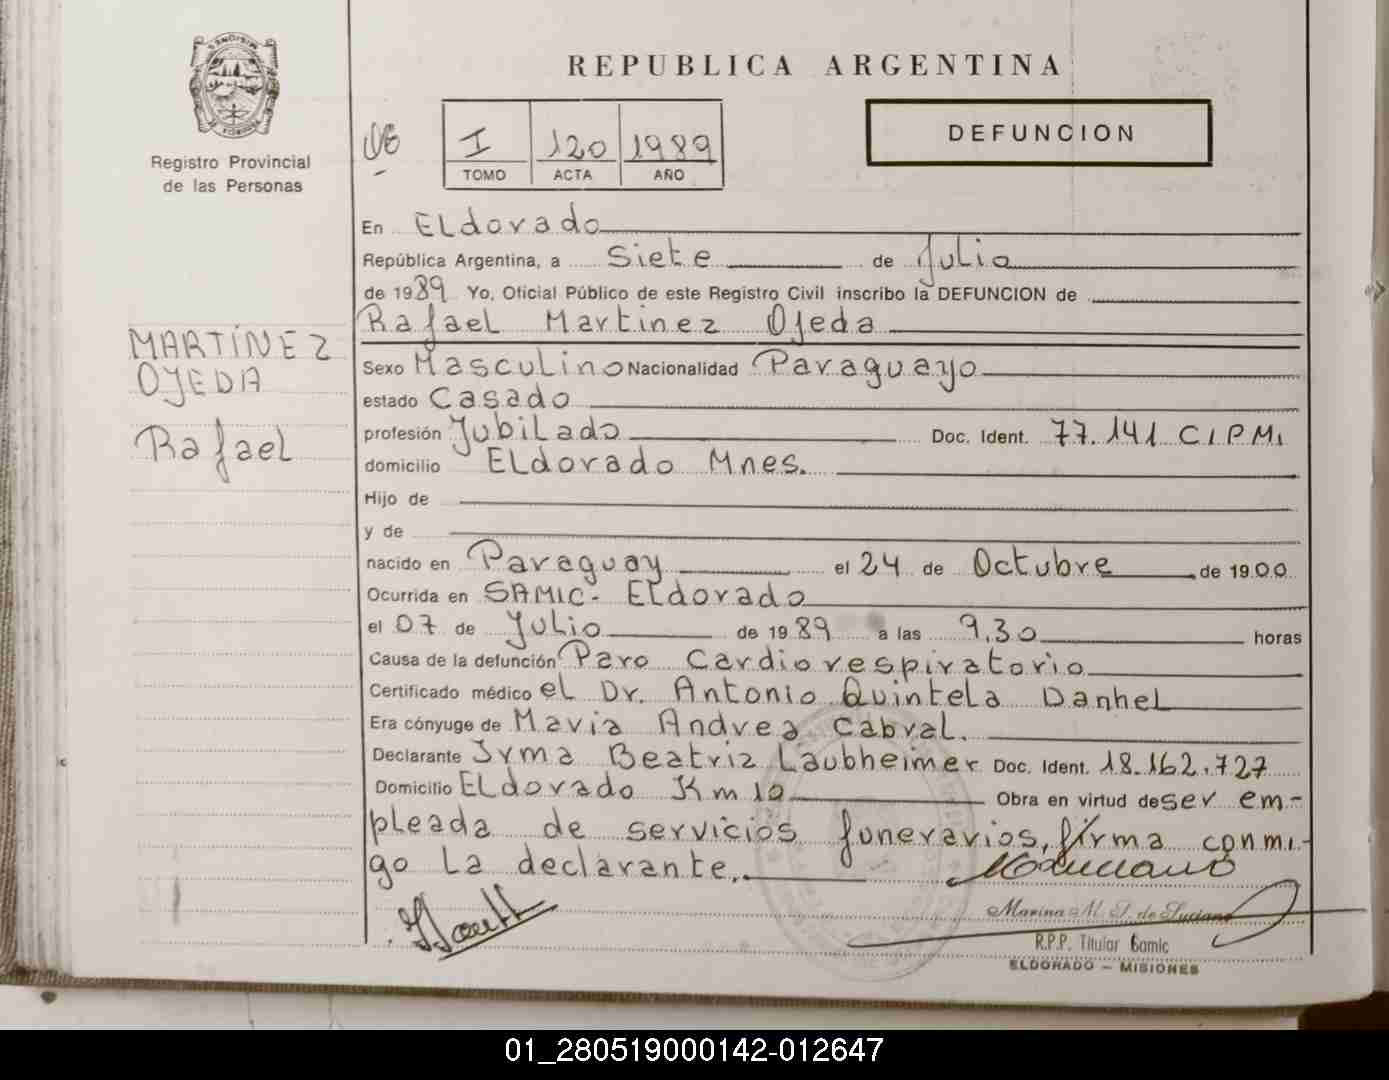 REPUBLICA ARGENTINA
MISIONES
Registro Provincial
de las Personas
I 120 1989
TOMO ACTA AÑO
DEFUNCION
En ELdorado
República Argentina, a siete de Julio
de 1989 Yo, Oficial Público de este Registro Civil inscribo la DEFUNCION de
Rafael Martinez Ojeda
MARTÍNEZ
OJEDA
Rafael
Sexo Masculino Nacionalidad Paraguayo
estado Casado
profesión Jubilado Doc. Ident. 77.141 C.I.P.M.
domicilio ELdorado Mnes.
Hijo de
y de
nacido en Paraguay el 24 de Octubre de 1900
Ocurrida en SAMIC- ELdorado
el 07 de Julio de 1989 a las 9,30 horas
Causa de la defunción Paro Cardiorespiratorio
Certificado médico el Dr. Antonio Quintela Danhel
Era cónyuge de Maria Andrea Cabral.
Declarante Irma Beatriz Laubheimer Doc. Ident. 18.162.727
Domicilio ELdorado Km 10 Obra en virtud de ser em-
pleada de servicios funerarios, firma conmi-
go la declarante.
Marina M. S. de Luciano
R.P.P. Titular Samic
ELDORADO - MISIONES
01_280519000142-012647